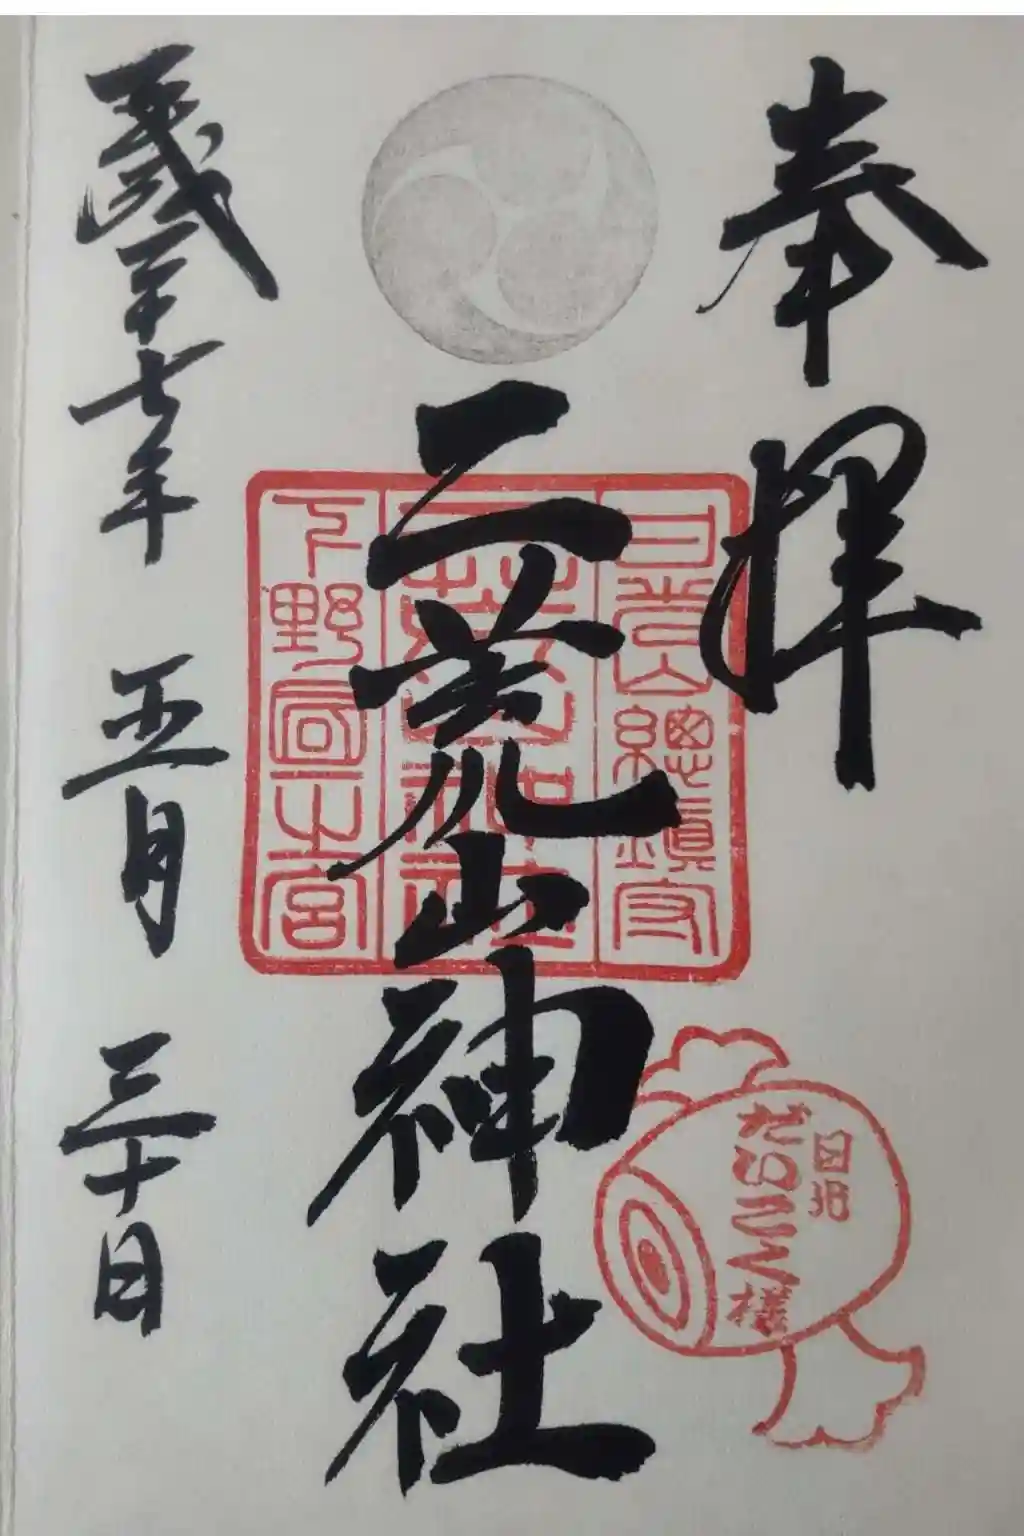 奉拝
日光山總鎮守
二荒山神社
二荒山神社
下野国一之宮
日光
だいこく様
平成二十七年 五月 三十日